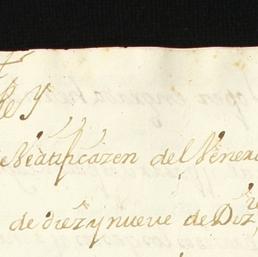 Rey
Beatificazon del Venera
de diez y nueve de Diz